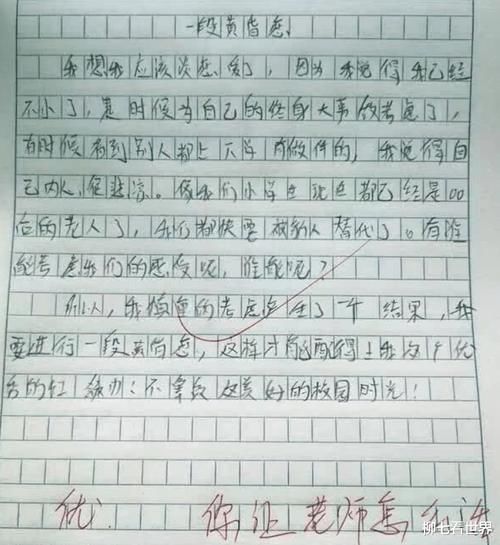 一段黄昏恋
我想我应该谈恋爱了，因为我觉得我已经
不小了，是时候为自己的终身大事做考虑了，
有时候看到别人都上下学有做伴的，我觉得自
己内人很悲凉。像我们小学生现在都已经是00
后的老人了，我们都快要被新人替代了。有谁
能考虑我们的感受呢，谁能呢？
所以，我慎重的考虑产生了一个结果，我
要进行一段黄昏恋，这样才能配得上我这个优
秀的红领巾！不辜负这美好的校园时光！
优 你让老师怎
柳七看世界